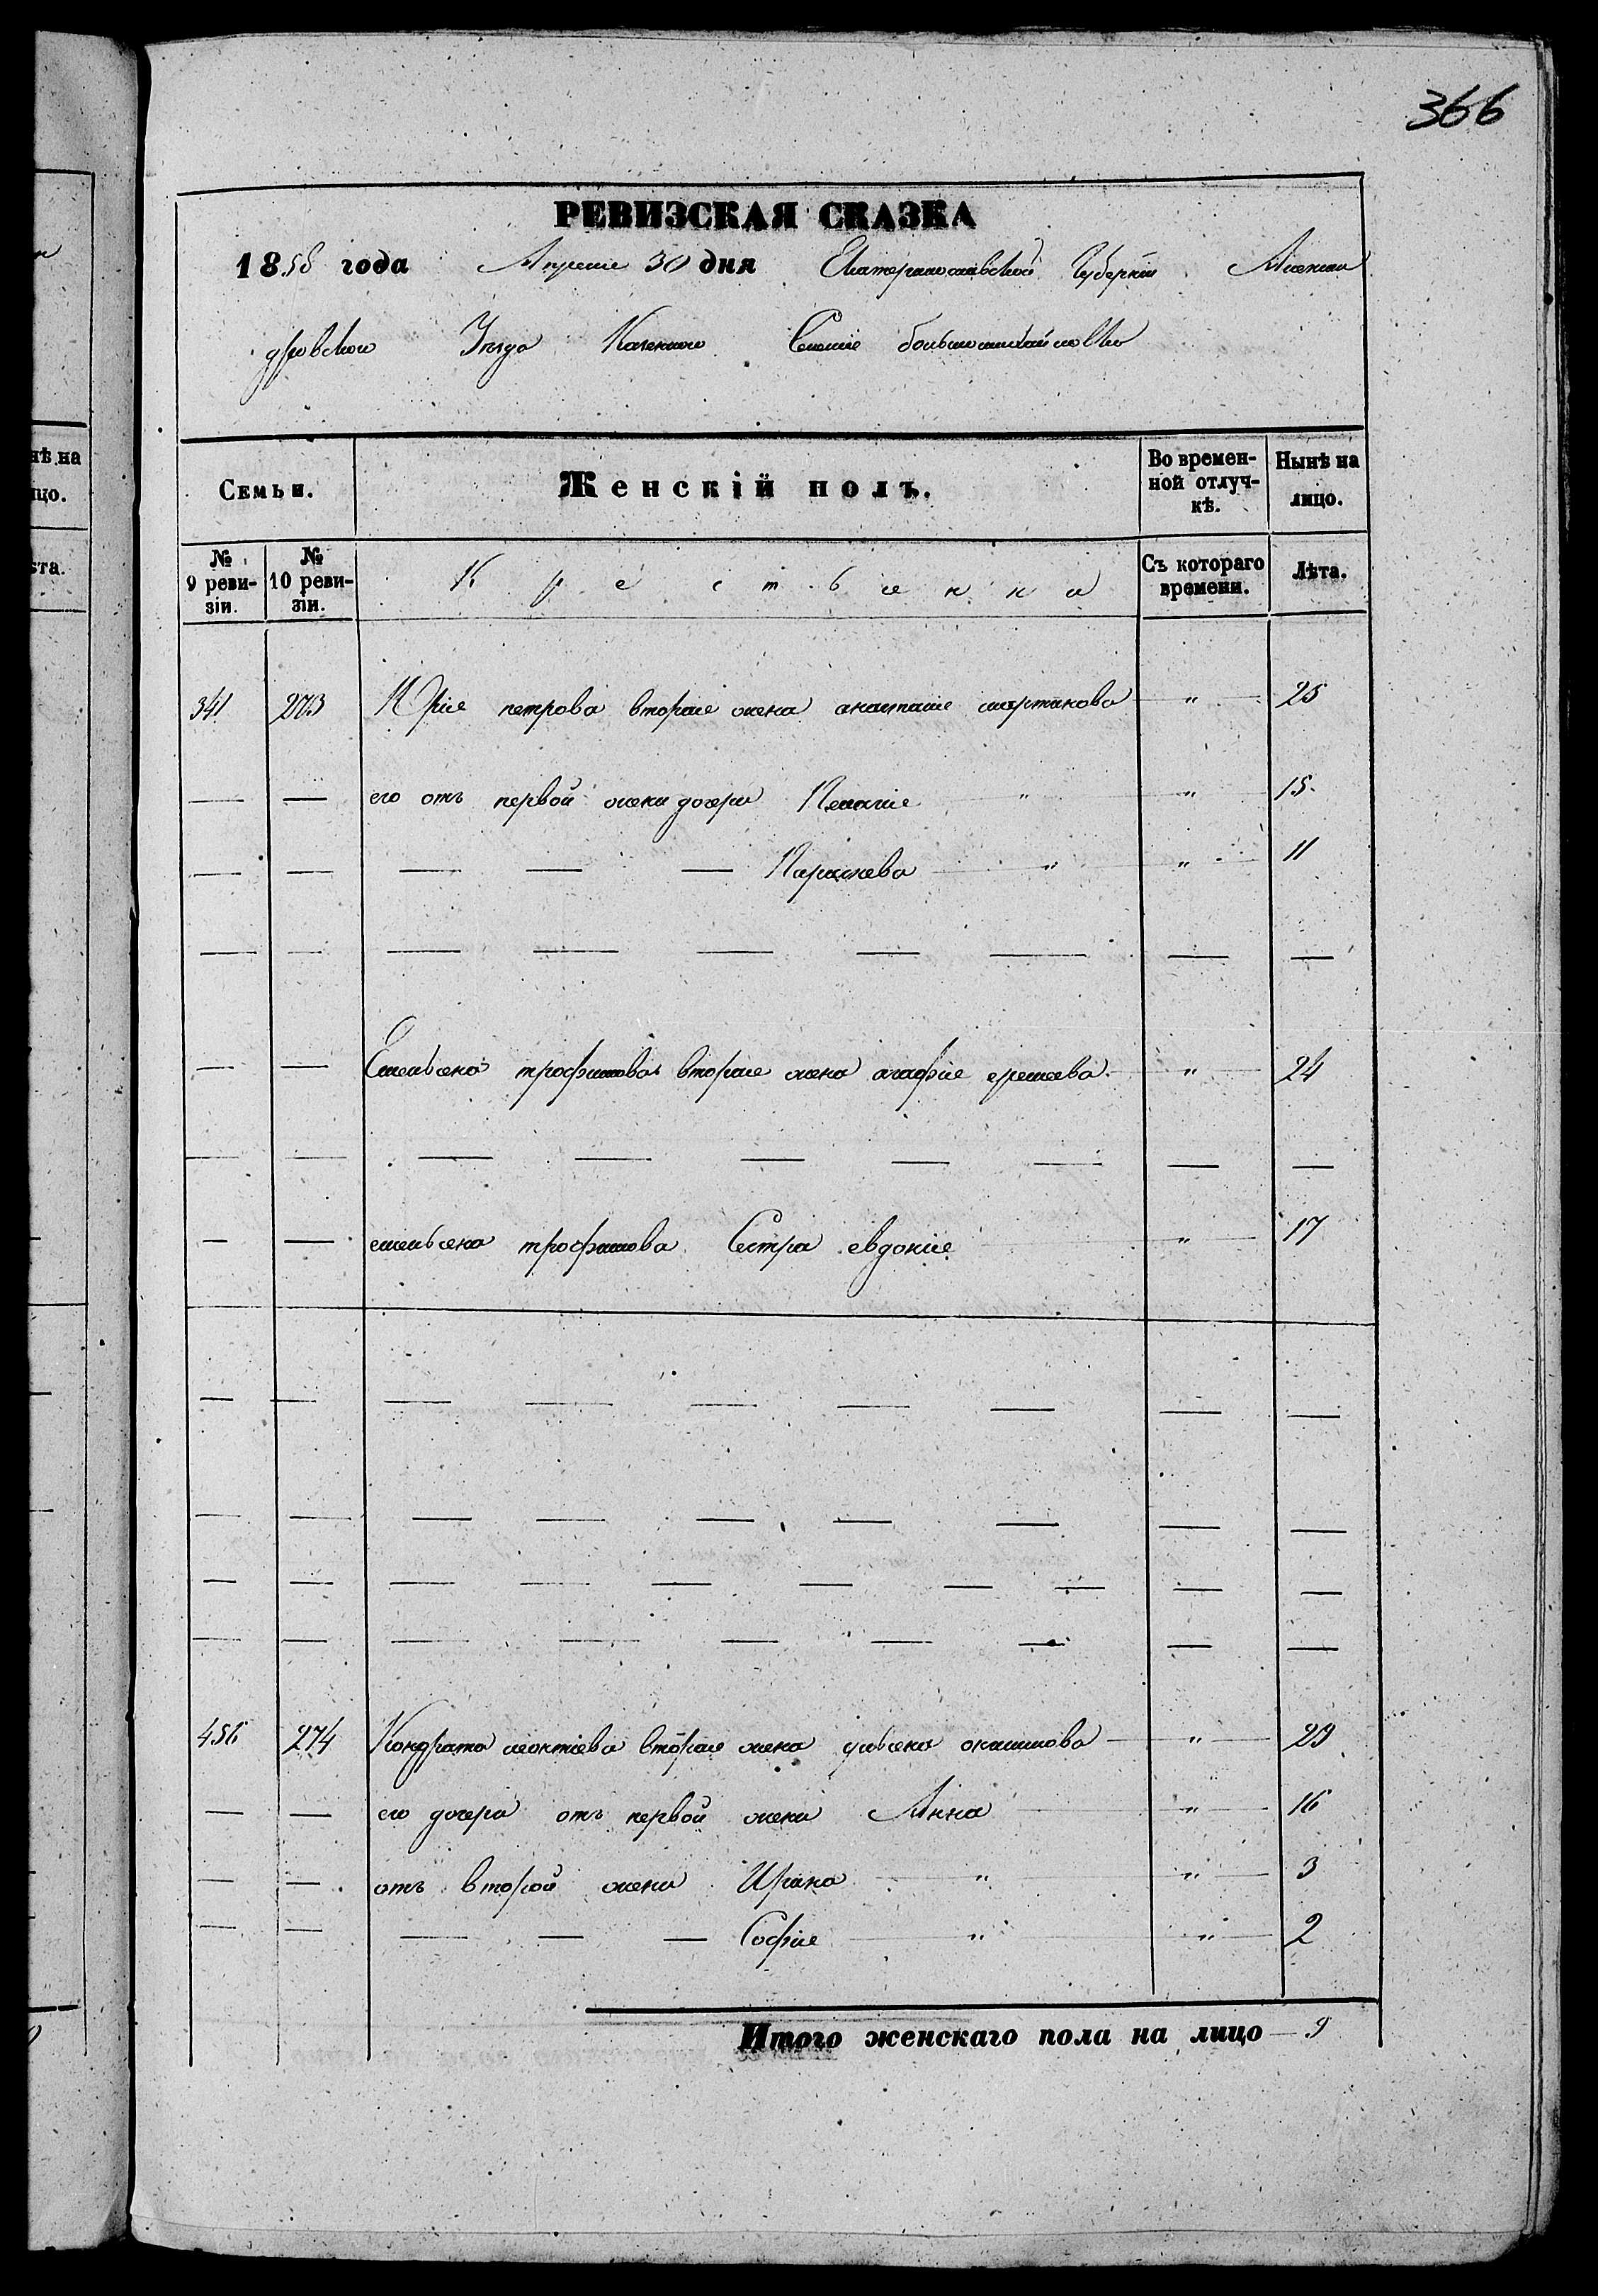 366
РЕВИЗСКАЯ СКАЗКА
1858 года Апреля 30 дня Екатеринославской Губернiи Алексан
дровского Уезда Казенного Селенiе большемихайловко
Семьи. Женскiй полъ. Во времен-ной отлуч-кѣ. Нынѣ на лицо.
№ 9 реви-зiи. № 10 реви-зiи. Крестьянки Съ котораго времени. Лѣта.
341 273 Юрiя петрова вторая жена анастасiя мартинова " 25
— — его отъ первой жени дочери Пелагiя " " 15
— — — — — Параскева " " 11
— — — — — — — — —
— — Емельяна трофимова вторая жена агафiя еремеева " 24
— — — — — — — — —
— — емельяна трофимова Сестра евдокiя " 17
— — — — — — — — —
— — — — — — — — —
— — — — — — — — — —
— — — — — — — — —
456 274 Кондрата леонтiева вторая жена улияна акимова " 29
— — его дочери отъ первой жени Анна " 16
— — отъ второй жени Ирина " " 3
— — — — — Софiя " " 2
Итого женскаго пола на лицо — 9
нѣ на
ицо.
ѣта.